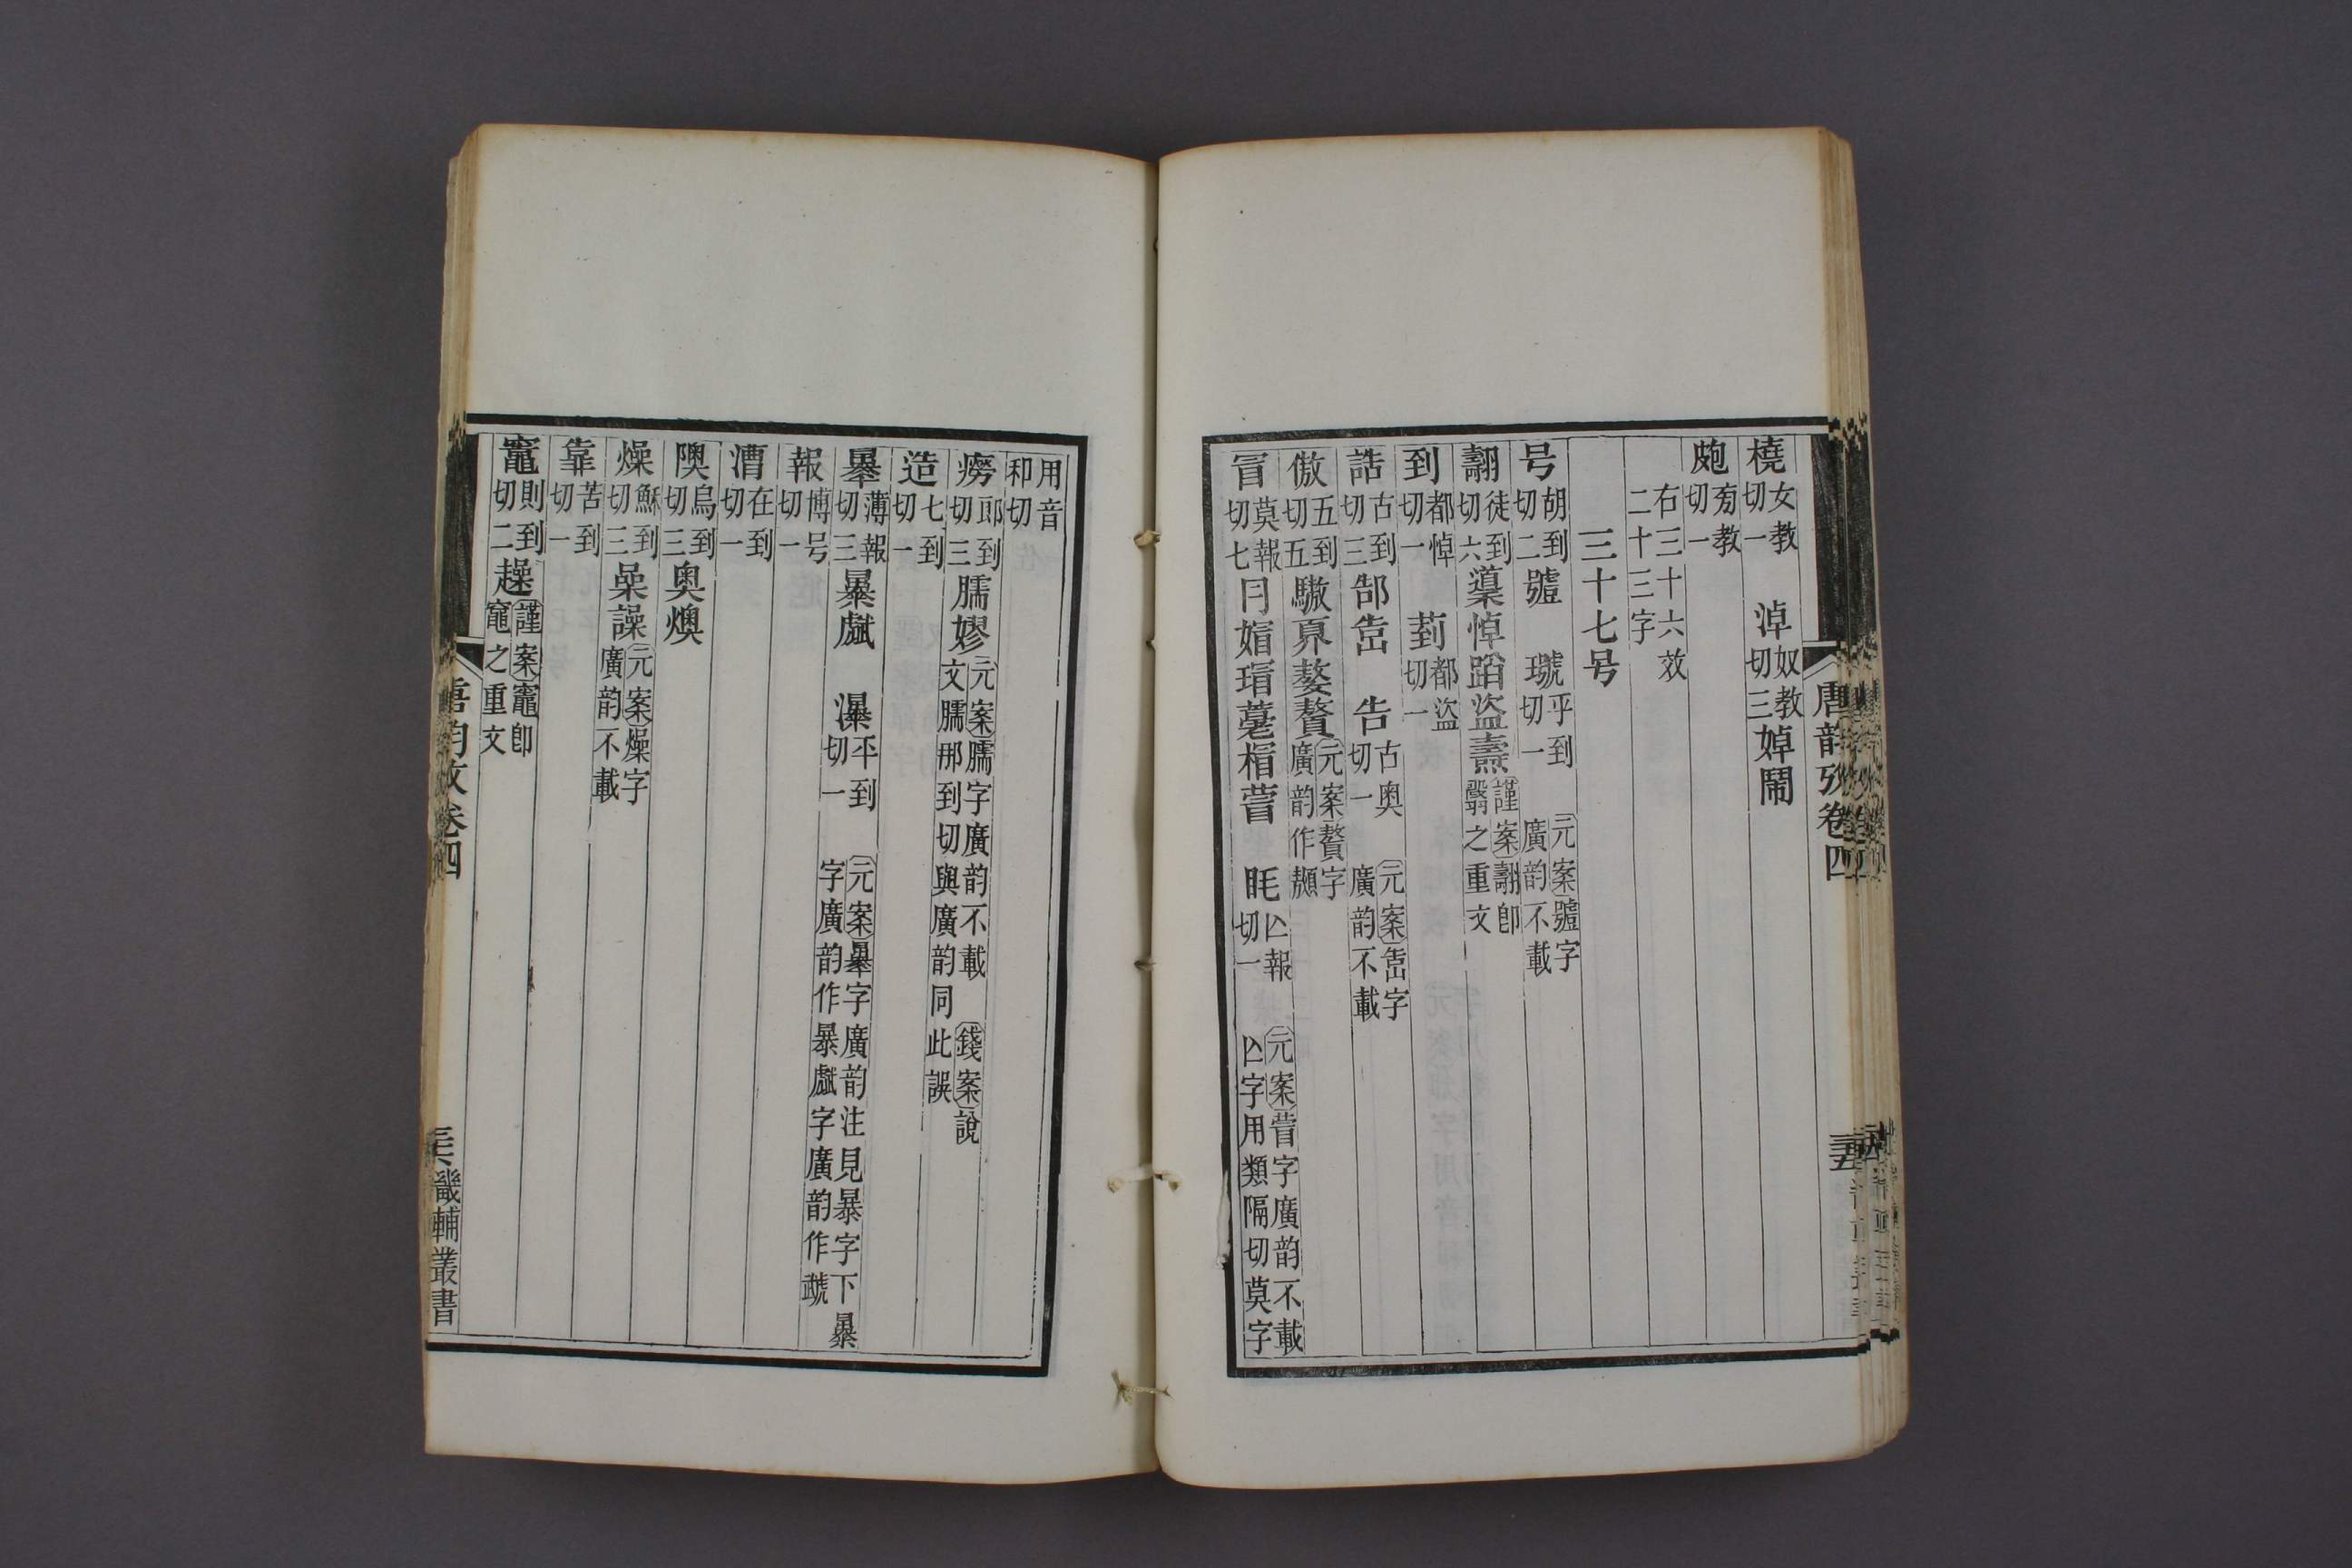 橈女教切一 淖奴教切三婥鬧
皰㫄教切一
右三十六效二十三字
三十七号
号胡到切二號 琥乎到切一 元案號字廣韵不載
翿徒到切六䆃悼蹈盜燾謹案翿卽翳之重文
到都悼切一 菿都盜切一
誥古到切三郜峼 告古奧切一 元案峼字廣韵不載
傲五到切五驐奡嫯贅元案贅字廣韵作䫨
冒莫報切七冃媢瑁蓩楣萺 眊亾報切一 元案萺字廣韵不載亾字用類隔切莫字
唐韵攷卷四
用音和切
癆郎到切三臑嫪元案臑字廣韵不載文臑那到切與廣韵同此誤 錢案說
造七到切一
㬥薄報切三暴虣 瀑平到切一 元案㬥字廣韵注見暴字下暴字廣韵作暴虣字廣韵作虣
報博号切一
漕在到切一
隩烏到切三奧燠
燥穌到切三喿譟元案燥字廣韵不載
靠苦到切一
竈則到切二趮謹案竈卽竈之重文
唐韵攷卷四
畿輔叢書